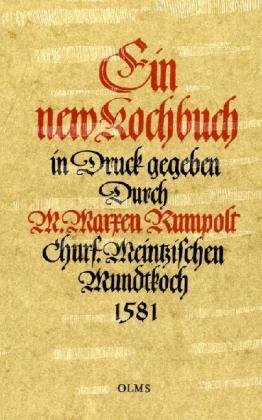 Ein
new Kochbuch
in Druck gegeben
Durch
M. Marxen Rumpolt
Churf. Meintzischen
Mundtkoch
1581
OLMS